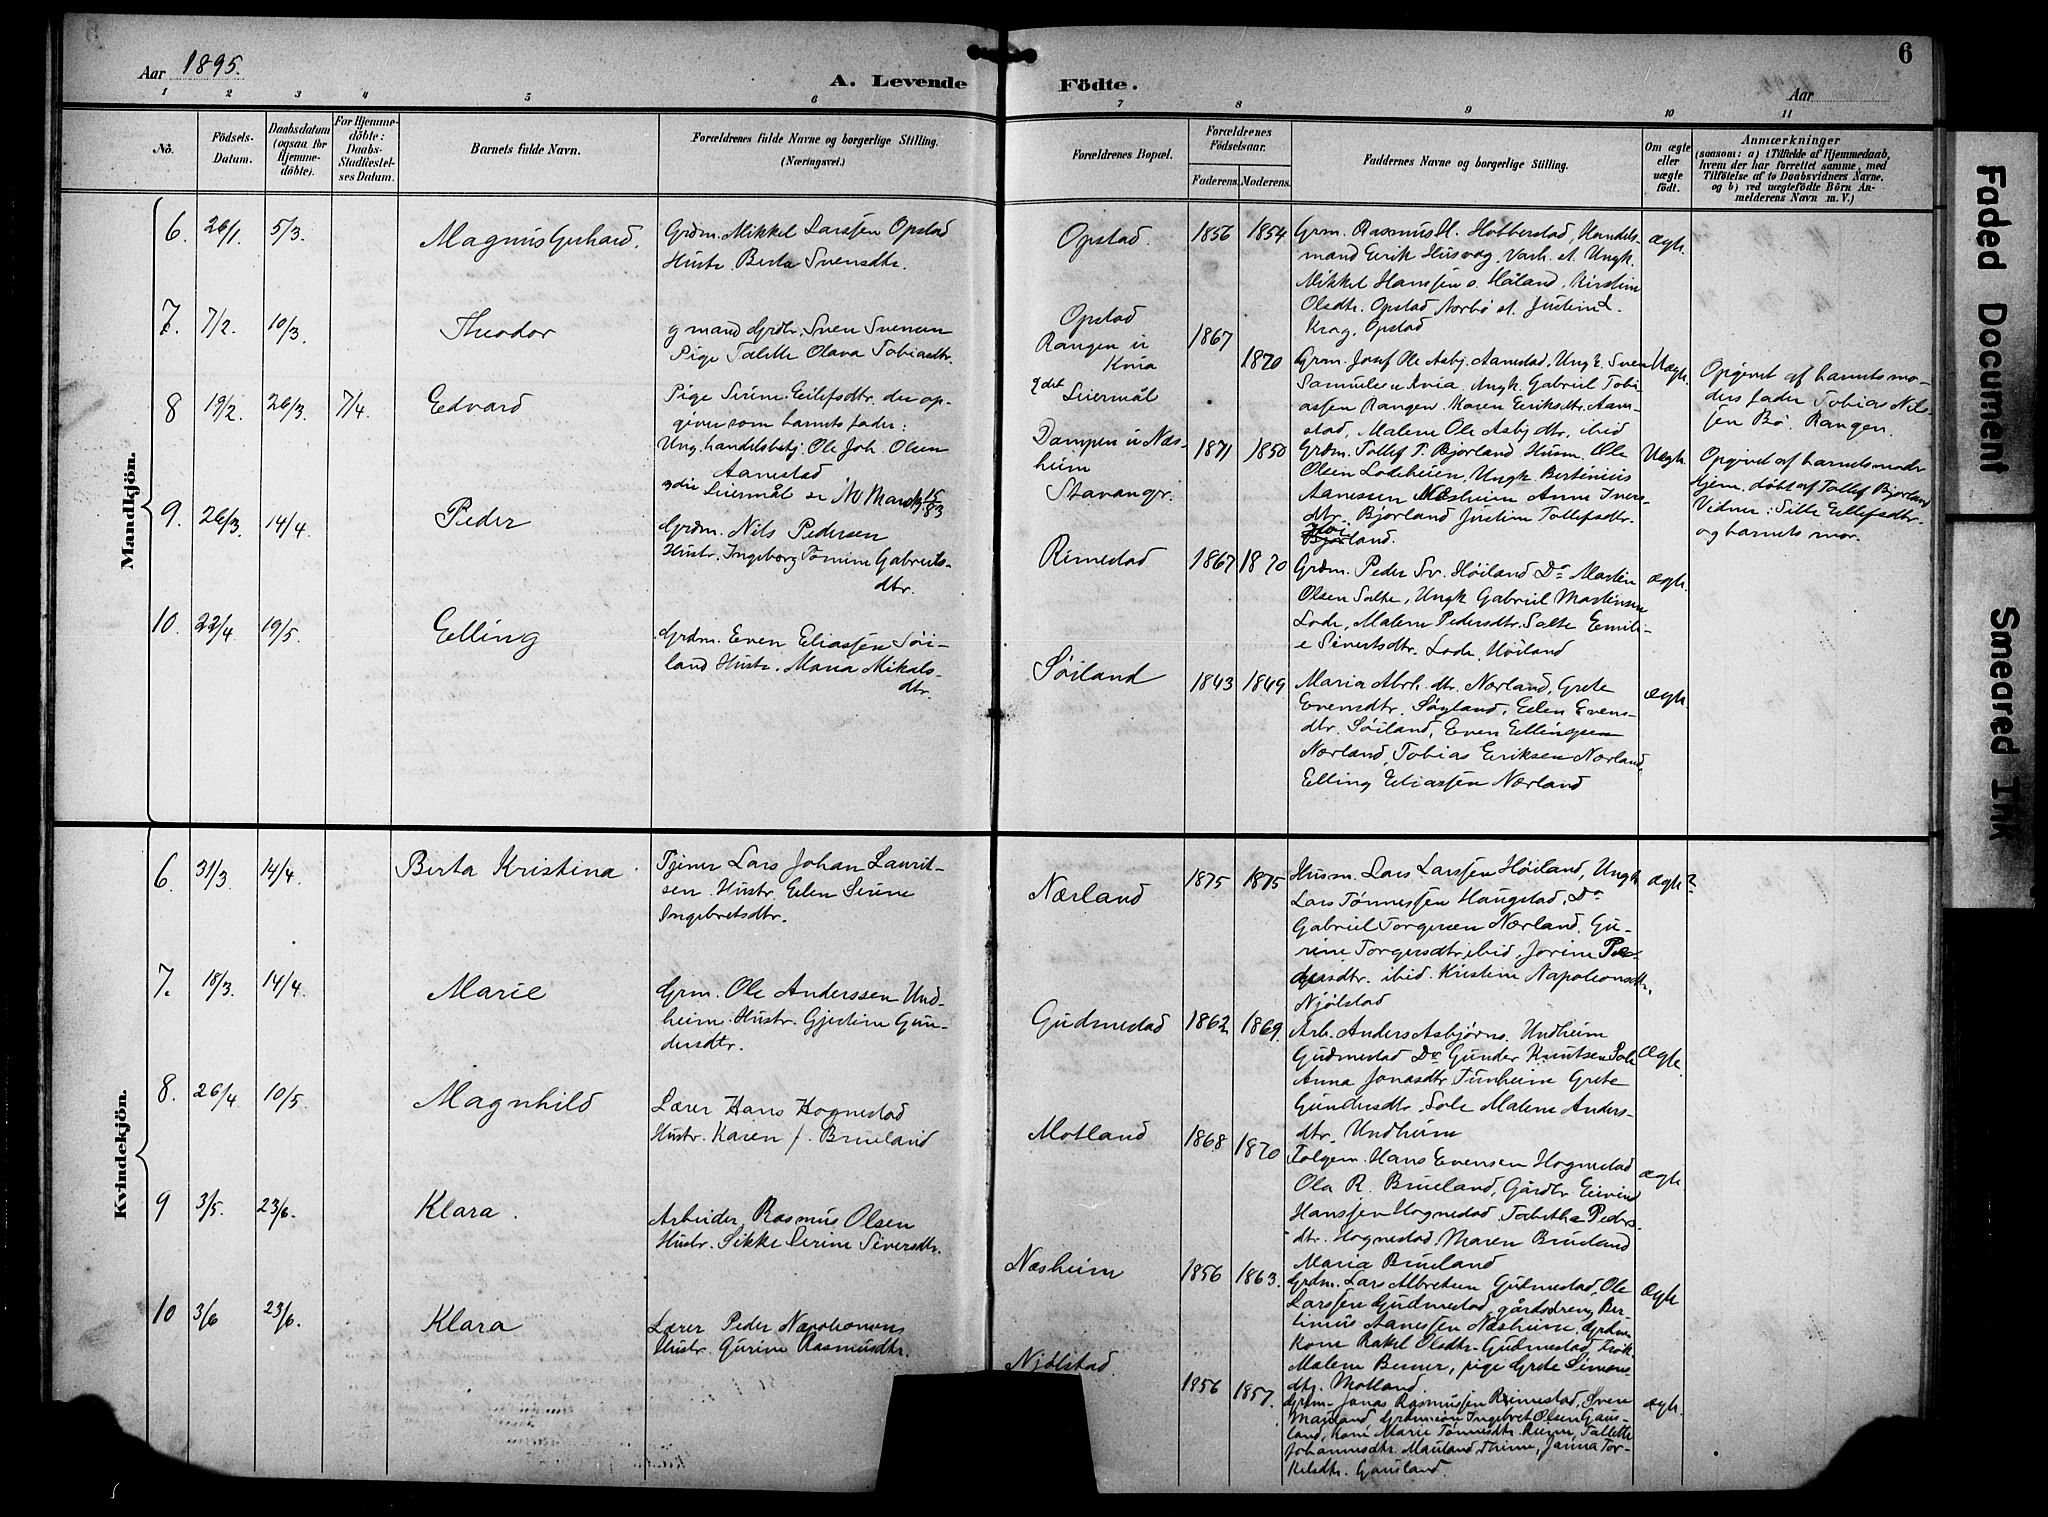 Aar 1895.
A. Levende Födte.
6
Aar
1 2 3 4 5 6 7 8 9 10 11
No.
Födsels-
Datum.
Daabsdatum
(ogsaa for
Hjemme-
döbte).
For Hjemme-
döbte:
Daabs-
Stadfæstel-
ses Datum.
Barnets fulde Navn.
Forældrenes fulde Navne og borgerlige Stilling.
(Næringsvei.)
Forældrenes Bopæl.
Forældrenes
Födselsaar.
Faderens. Moderens.
Faddernes Navne og borgerlige Stilling.
Om ægte
eller
uægte
født.
Anmærkninger
(saasom: a) i Tilfælde af Hjemmedaab,
hvem der har forrettet samme, med
Tilföielse af to Daabsvidners Navne.
og b) ved uægtefödte Börn An-
melderens Navn m. V.)
Mandkjön.
6. 26/1 5/3. Magnus Gerhard.
Grdm. Mikkel Larssen Opstad
Hustr. Berta Svensdtr.
Opstad. 1856 1854
Grm. Rasmus H. Hobberstad, Handels-
mand Eirik Husvæg, Varh. st. Ungk.
Mikkel Hanssen s. Håland, Kirstine
Olsdtr. Opstad Norbø st. Justine L.
Krag, Opstad
ægte.
7. 7/2. 10/3. Theodor
g mand Grdbr. Sven Svensen
Pige Talette Olava Tobiasdtr.
Opstad
Rangen u
Kvia
1867 1870
Grm. Josef Ole Asbj. Aanestad, Ungk. Sven
Samuelsen Kvia, Ungk. Gabriel Tobi-
assen Rangen. Maren Eriksdtr. Aane-
stad, Malene Ole Asbj dtr. ibid
Uægte.
Opgivet af barnets mo-
ders fader Tobias Nils-
sen Bø. Rangen.
8 19/2. 26/3. 7/4. Edvard
Pige Serine Eilefsdtr. der op-
giver som barnets fader:
Ung. handelsbetj. Ole Joh. Olsen
Aanestad
2 det
Leiermål
Dampen u Næs-
heim
Stavanger.
1871 1850
Grdm. Tollef T. Bjorland Husm. Ole
Olsen Lodeheien, Ungk. Bertinius
Aanessen Næsheim Anne Ivers-
dtr. Bjorland Justine Tollefsdtr.
Høiland.
Uægte.
Opgivet af barnets moder
hjem. døbt af Tollef Bjorland
Vidner: Sille Eilefsdtr.
og barnets mor.
9. 26/3. 14/4. Peder
Grdm. Nils Pedersen
Hustr. Ingeborg Tomine Gabriels-
dtr.
Rimestad 1867 1870
Grdm. Peder Sv. Høiland Do Martin
Olsen Salte, Ungk Gabriel Martinsen
Lode, Malene Pedersdtr. Salte Emili-
e Sivertsdtr. Lode, Høiland
ægte.
10. 22/4 19/5. Elling
Grdm. Even Eliassen Søi-
land Hustr. Maria Mikals-
dtr.
Søiland 1843 1849
Maria Abrh. dtr. Nærland, Grete
Evensdtr. Søyland, Elen Evens-
dtr. Søiland, Even Ellingsen
Nærland, Tobias Eriksen Nærland,
Elling Eliassen Nærland
ægte.
Kvindekjön.
6. 31/3. 14/4. Berta Kristina.
Tjener Lars Johan Laurit-
sen. Hustr. Elen Serine
Ingebretsdtr.
Nærland 1875 1875
Husm. Lars Larssen Høiland, Ungk
Lars Tønnessen Haugstad. Do
Gabriel Torgersen Nærland. Gu-
rine Torgersdtr. ibid. Jorine Pe-
dersdtr. ibid. Kristine Napoleonsdtr.
Njølstad
ægte?
7. 18/3. 14/4. Marie
Grm. Ole Anderssen Und-
heim. Hustr. Gjertine Gun-
dersdtr.
Gudmestad 1862 1869.
Arb. Anders Asbjørns. Undheim
Gudmestad Do Gunder Knutsen Sole
Anna Jonasdtr Tunheim Grete
Gundersdtr. Sole Malene Anders-
dtr. Undheim
Ægte.
8. 26/4 10/5. Magnhild
Lærer Hans Hognestad
Hustr. Karen f. Brueland
Motland 1868 1870
Folgem. Hans Evensen Hognestad
Ola R. Brueland, Gårdbr Eivind
Hanssen Hognestad, Tabitha Peders-
dtr. Hognestad. Maren Brueland
Maria Brueland
ægte.
9 3/5. 23/6. Klara.
Arbeider Rasmus Olsen
Hustr. Sikke Serine Siversdtr.
Næsheim 1856 1863.
Grdm. Lars Albretsen Gudmestad, Ole
Larssen Gudmestad, gårdsdreng Ber-
tinius Aanessen Næsheim. Grdm.
kone Rakel Olsdtr. Gudmestad, Frøk.
Malene Berner, pige Grete Simons
dtr. Motland.
ægte
10 3/6 23/6. Klara
Lærer Peder Napoleonsen
Hustr. Gurine Rasmusdtr.
Njølstad 1856 1857.
Grdm. Jonas Rasmussen Rimestad, Sven
Mauland, Grdmsøn Ingebret Olsen Gaus-
land, Kone Marie Tønnesdtr. Riime, Tallette
Johannesdtr. Mauland, Thime, Janna Tor-
kelsdtr. Gausland.
ægte.
Faded Document
Smeared Ink